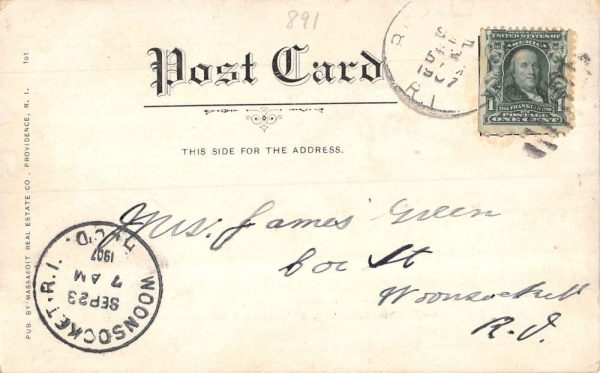 891
Post Card
THIS SIDE FOR THE ADDRESS.
PUB. BY MASSASOIT REAL ESTATE CO., PROVIDENCE, R. I. 101
SEP
1907
R.I.
UNITED STATES OF
AMERICA
FRANKLIN
POSTAGE
ONE CENT
Mrs. James Green
St
Woonsocket
R.I.
WOONSOCKET, R.I.
SEP 23
7 AM
1907
REC'D.